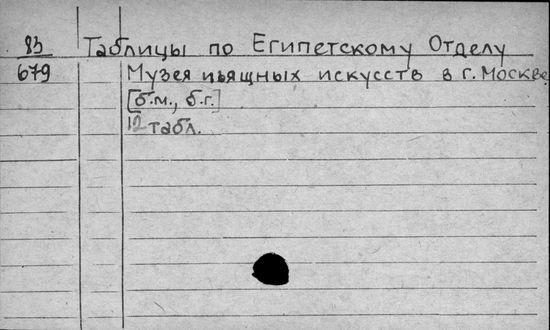 83 Таблицы по Египетскому Отделу
679 Музея изящных искусств в г. Москве
[б.м., б.г.]
12 табл.